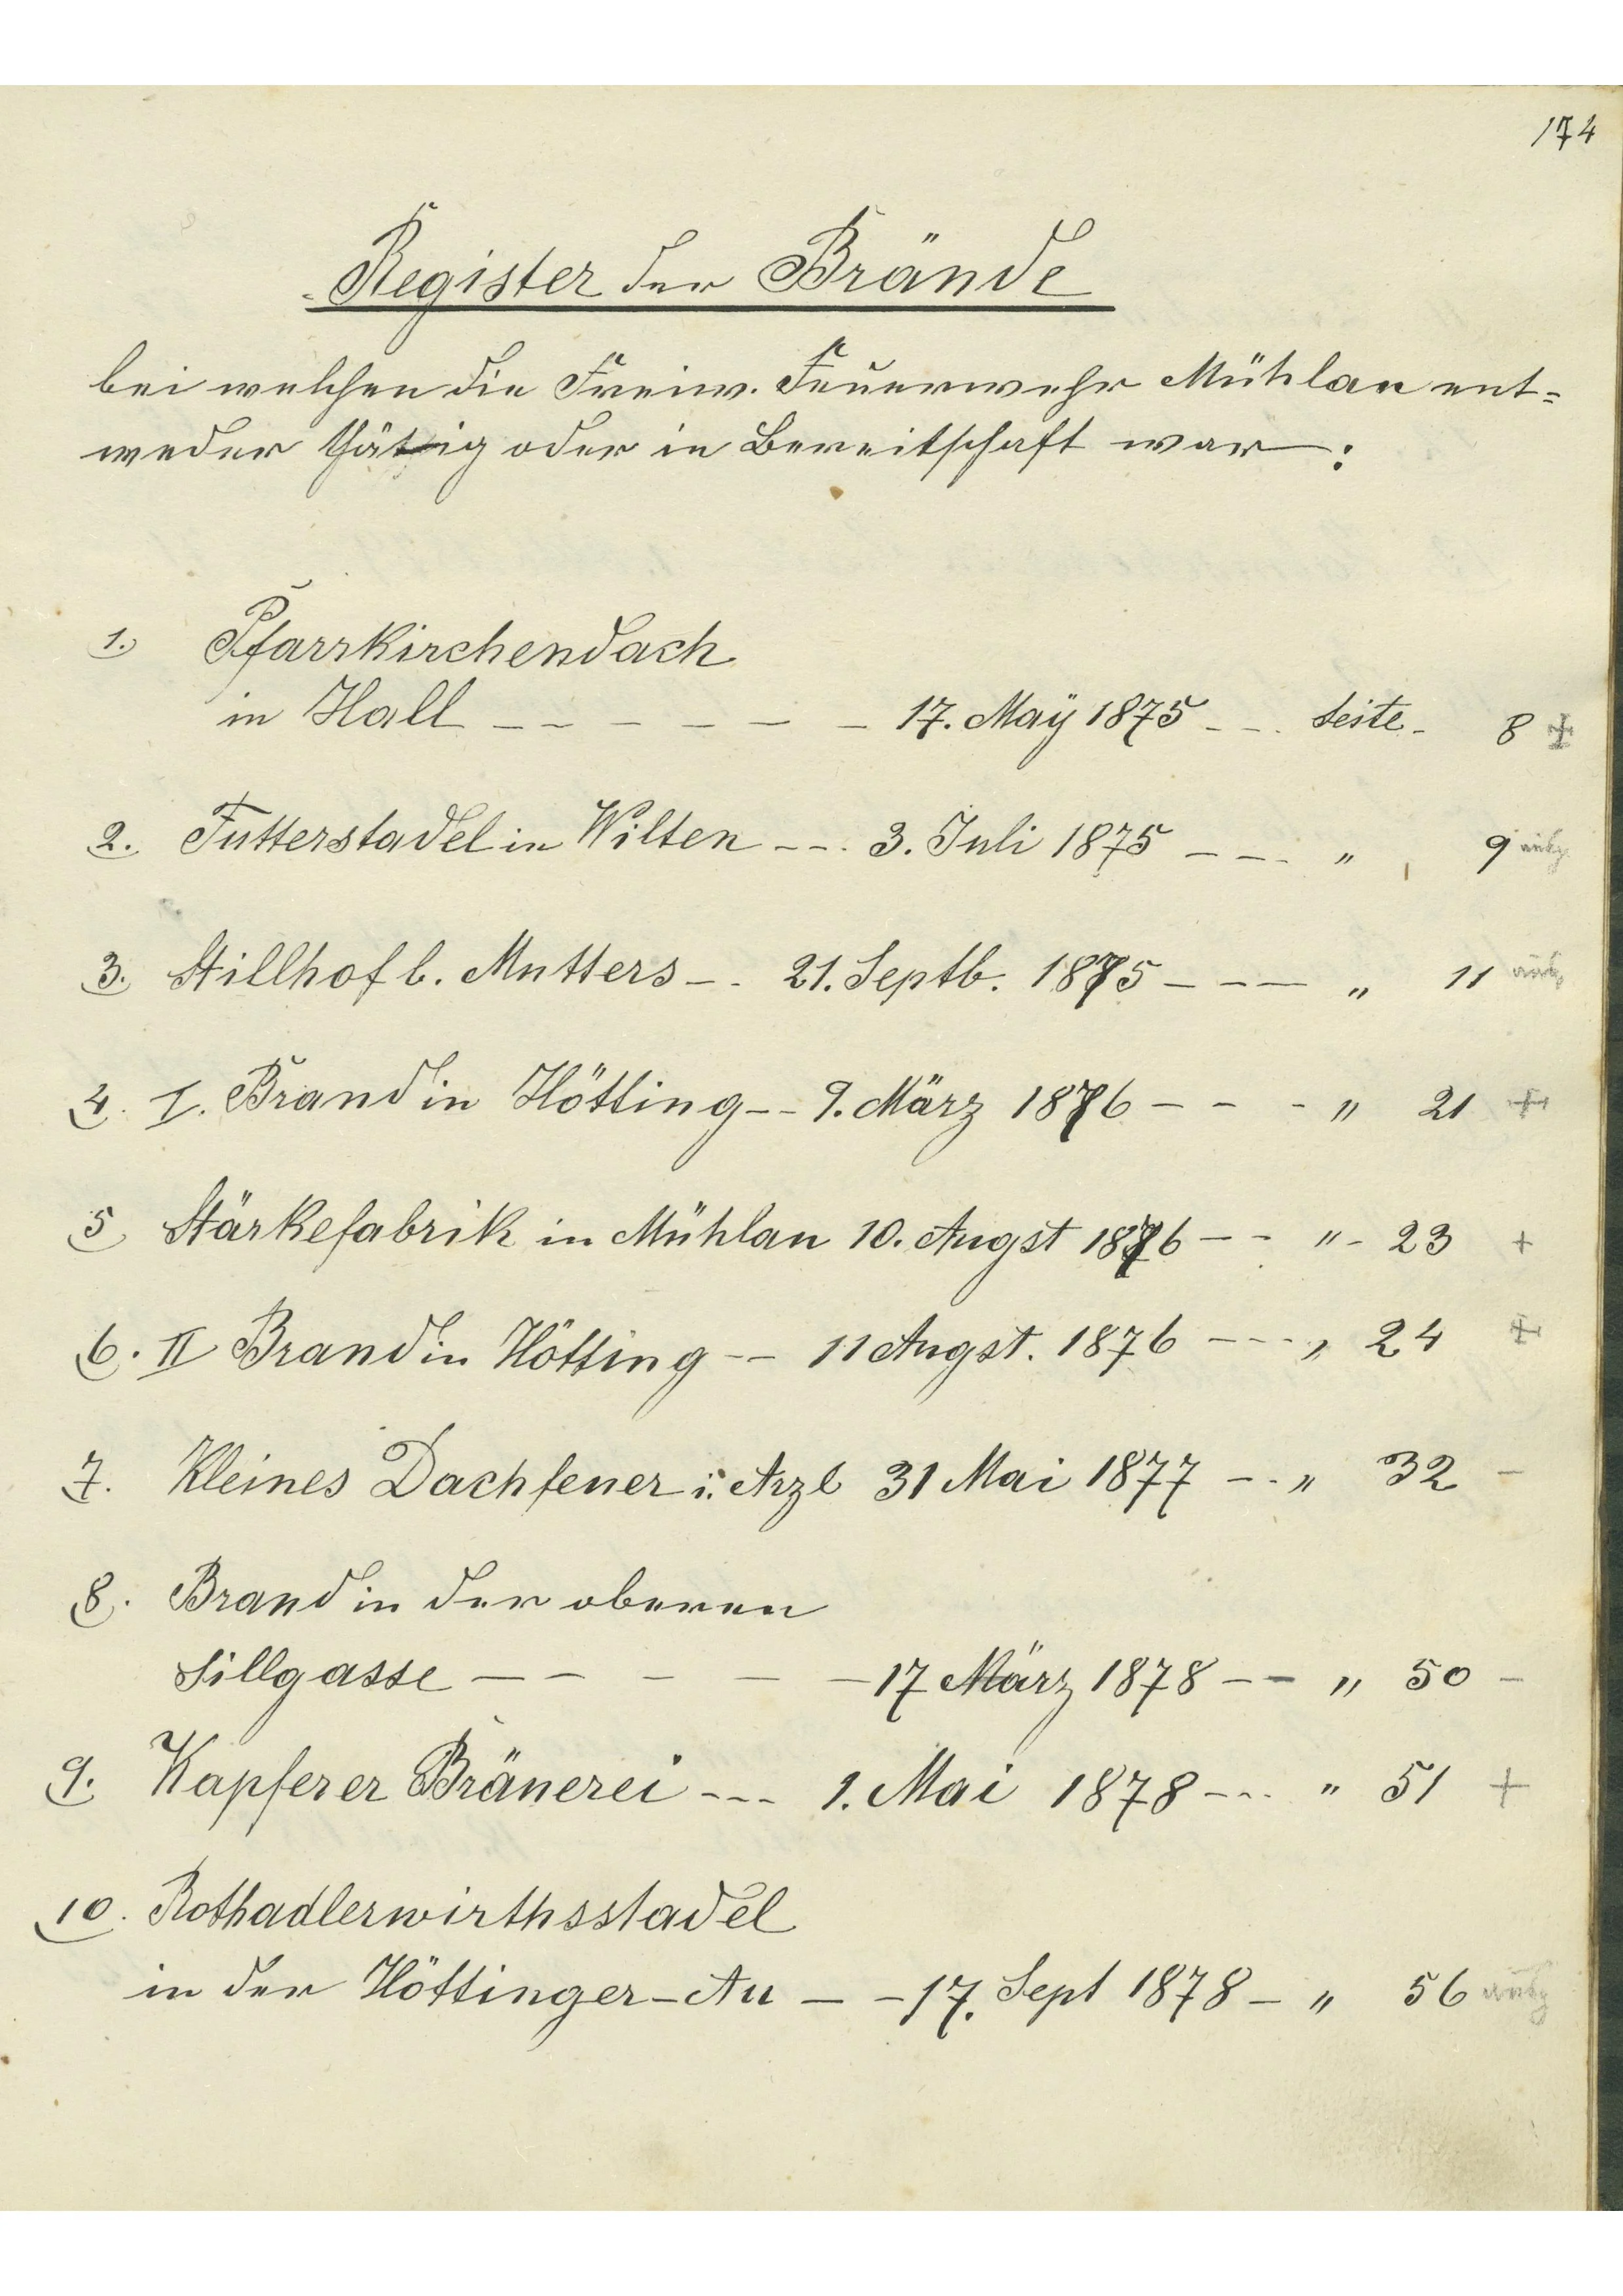 174
Register der Brände
bei welchen die Freiw. Feuerwehr Mühlau ent=
weder thätig oder in Bereitschaft war:
1. Pfarrkirchendach
in Hall - - - - - - 17. Maÿ 1875 - - Seite - 8 +
2. Futterstadel in Wilten - - - 3. Juli 1875 - - - " 9
3. Stillhof b. Mutters - - 21. Septb. 1875 - - - " 11
4. I. Brand in Hötting - - 9. März 1876 - - - " 21 +
5 Stärkefabrik in Mühlau 10. Augst 1876 - - " - 23 +
6. II Brand in Hötting - - 11 Augst. 1876 - - - " 24 +
7. Kleines Dachfeuer i. Arzl 31 Mai 1877 - - " 32 -
8. Brand in der oberen
Sillgasse - - - - - 17 März 1878 - - " 50 -
9. Kapferer Bräuerei - - - 1. Mai 1878 - - - " 51 +
10. Rothadlerwirthsstadel
in der Höttinger-Au - - 17. Sept 1878 - " 56